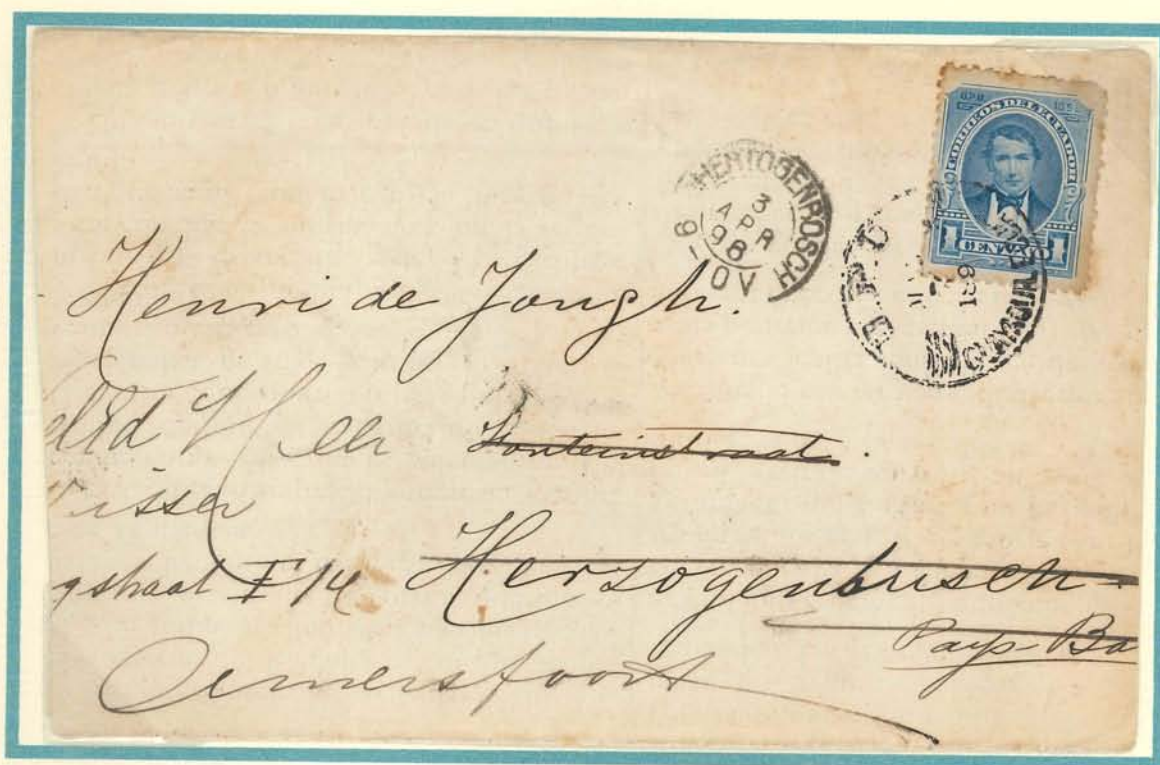 CORREOS DEL ECUADOR
1 CENTAVO 1
'SHERTOGENBOSCH
3
APR
98
9-10V
GUAYAQUIL
189
Henri de Jongh.
Heer Fonteinstraat.
Visser
gstraat I 14 Herzogenbusch
Pays-Ba
Amersfoort